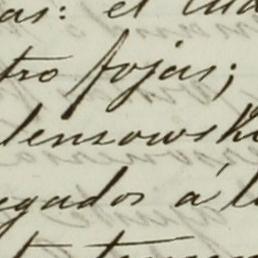 as: el cua
tro fojas;
lensowsk
egados á l